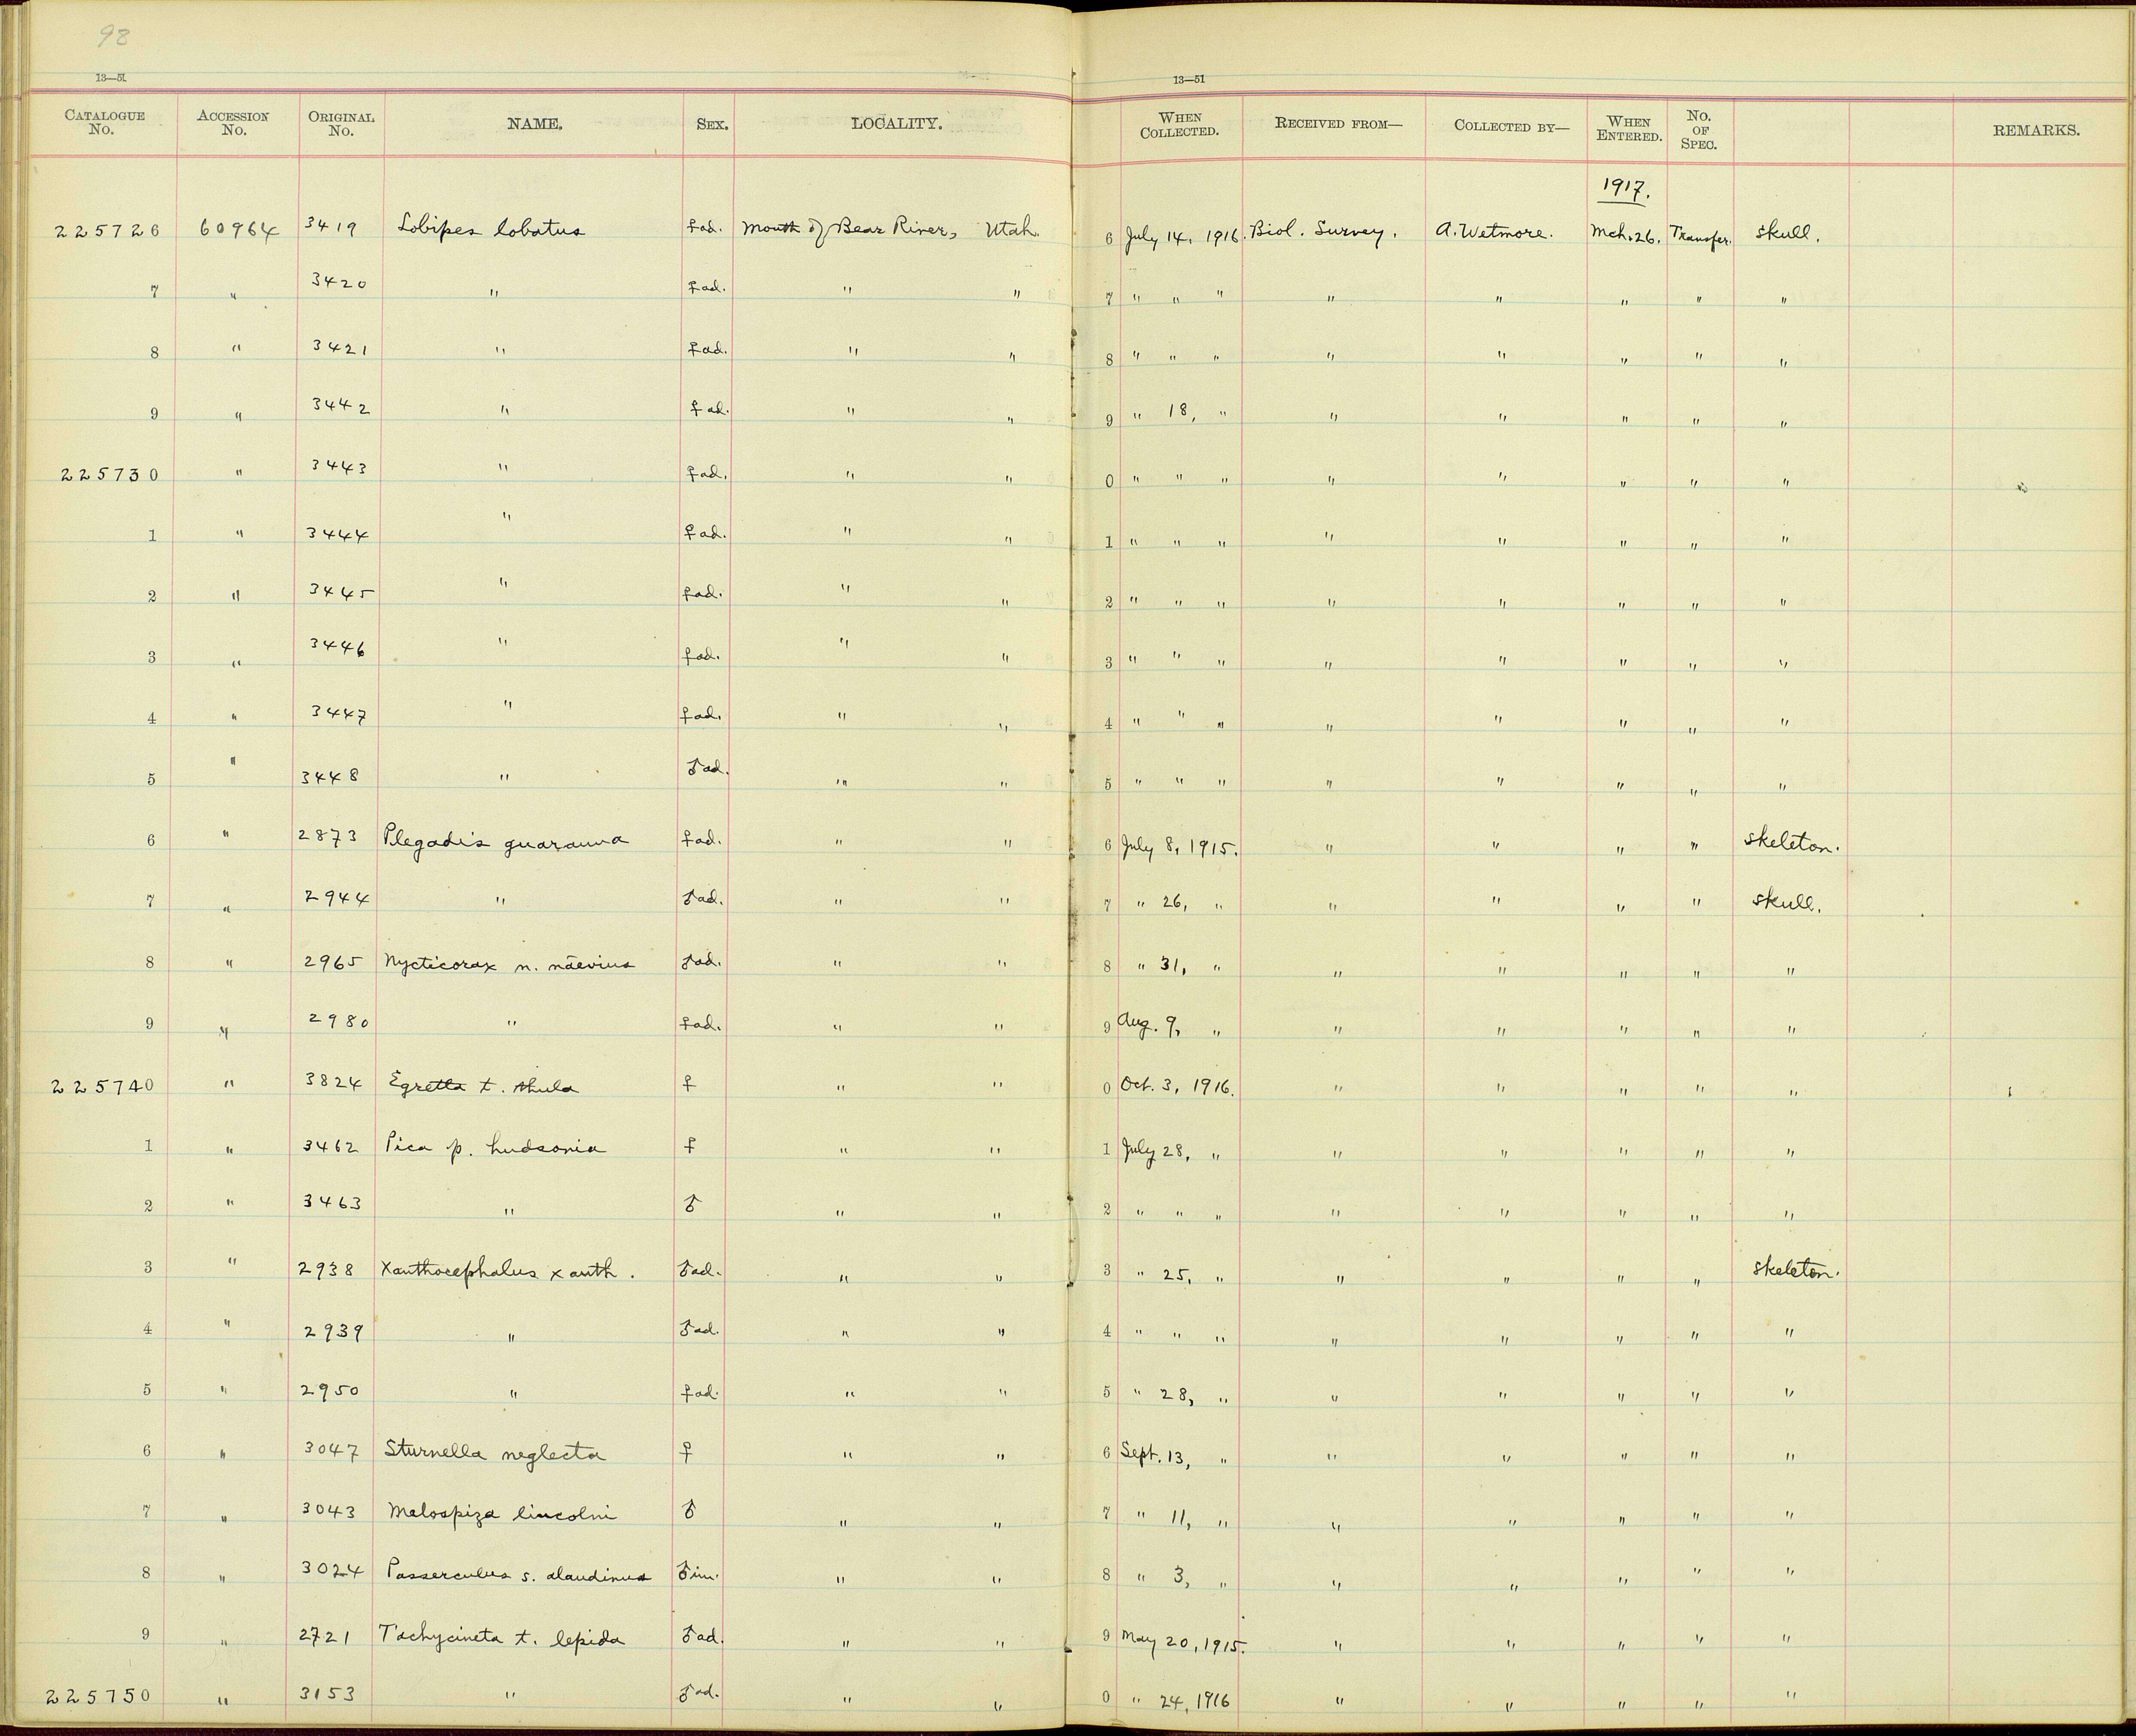 98
13—51
13—51
CATALOGUE No. ACCESSION No. ORIGINAL No. NAME. SEX. LOCALITY. WHEN COLLECTED. RECEIVED FROM— COLLECTED BY— WHEN ENTERED. No. OF SPEC. REMARKS.
1917.
225726 60964 3419 Lobipes lobatus ♀ad. Mouth of Bear River, Utah. 6 July 14, 1916. Biol. Survey. A. Wetmore. Mch. 26. Transfer. Skull.
7 " 3420 " ♀ad. " " 7 " " " " " " " "
8 " 3421 " ♀ad. " " 8 " " " " " " " "
9 " 3442 " ♀ad. " " 9 " 18, " " " " " "
225730 " 3443 " ♀ad. " " 0 " " " " " " " "
1 " 3444 " ♀ad. " " 1 " " " " " " " "
2 " 3445 " ♀ad. " " 2 " " " " " " " "
3 " 3446 " ♀ad. " " 3 " " " " " " " "
4 " 3447 " ♀ad. " " 4 " " " " " " " "
5 " 3448 " ♂ad. " " 5 " " " " " " " "
6 " 2873 Plegadis guarauna ♀ad. " " 6 July 8, 1915. " " " " Skeleton.
7 " 2944 " ♂ad. " " 7 " 26, " " " " " Skull.
8 " 2965 Nycticorax n. naevius ♂ad. " " 8 " 31, " " " " " "
9 " 2980 " ♀ad. " " 9 Aug. 9, " " " " " "
225740 " 3824 Egretta t. thula ♀ " " 0 Oct. 3, 1916. " " " " "
1 " 3462 Pica p. hudsonia ♀ " " 1 July 28, " " " " " "
2 " 3463 " ♂ " " 2 " " " " " " " "
3 " 2938 Xanthocephalus xanth. ♂ad. " " 3 " 25, " " " " " Skeleton.
4 " 2939 " ♂ad. " " 4 " " " " " " " "
5 " 2950 " ♀ad. " " 5 " 28, " " " " " "
6 " 3047 Sturnella neglecta ♀ " " 6 Sept. 13, " " " " " "
7 " 3043 Melospiza lincolni ♂ " " 7 " 11, " " " " " "
8 " 3024 Passerculus s. alaudinus ♂im. " " 8 " 3, " " " " " "
9 " 2721 Tachycineta t. lepida ♂ad. " " 9 May 20, 1915. " " " " "
225750 " 3153 " ♂ad. " " 0 " 24, 1916 " " " " "